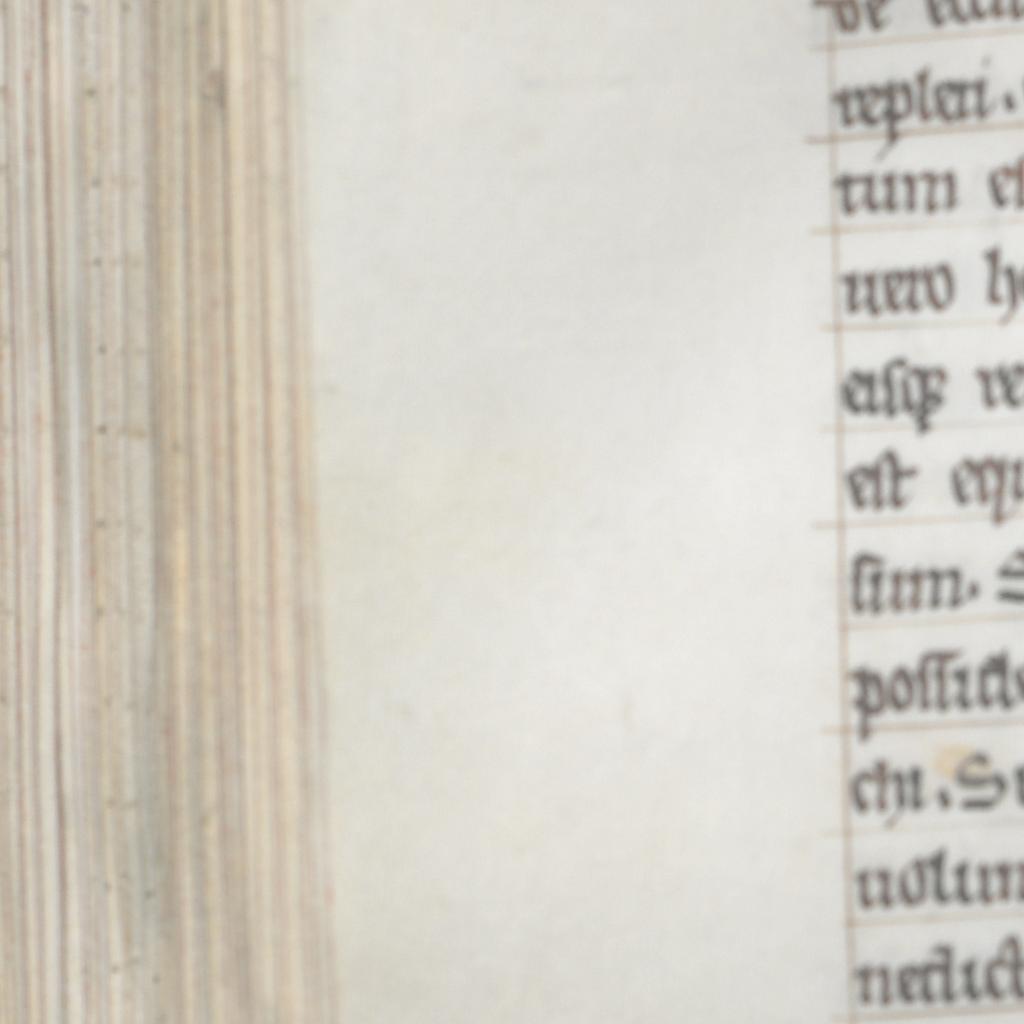 de
repleri.
tum
uero
eisq;
est equ
sium. S
possid
chi. Su
uolun
nedict